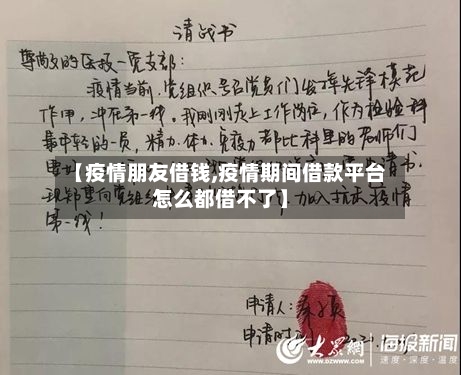 请战书
尊敬的医技一党支部：
疫情当前，党组织号召党员们发挥先锋模范
作用，冲在第一线。我刚刚走上工作岗位，作为检验科
最年轻的一员，精力、体力、免疫力都比科里的老师们
【疫情朋友借钱,疫情期间借款平台
怎么都借不了】
现郑重向党组织
加入抗击疫情
第一线！
申请人：
申请时
大众网
海报新闻
速度·深度·温度